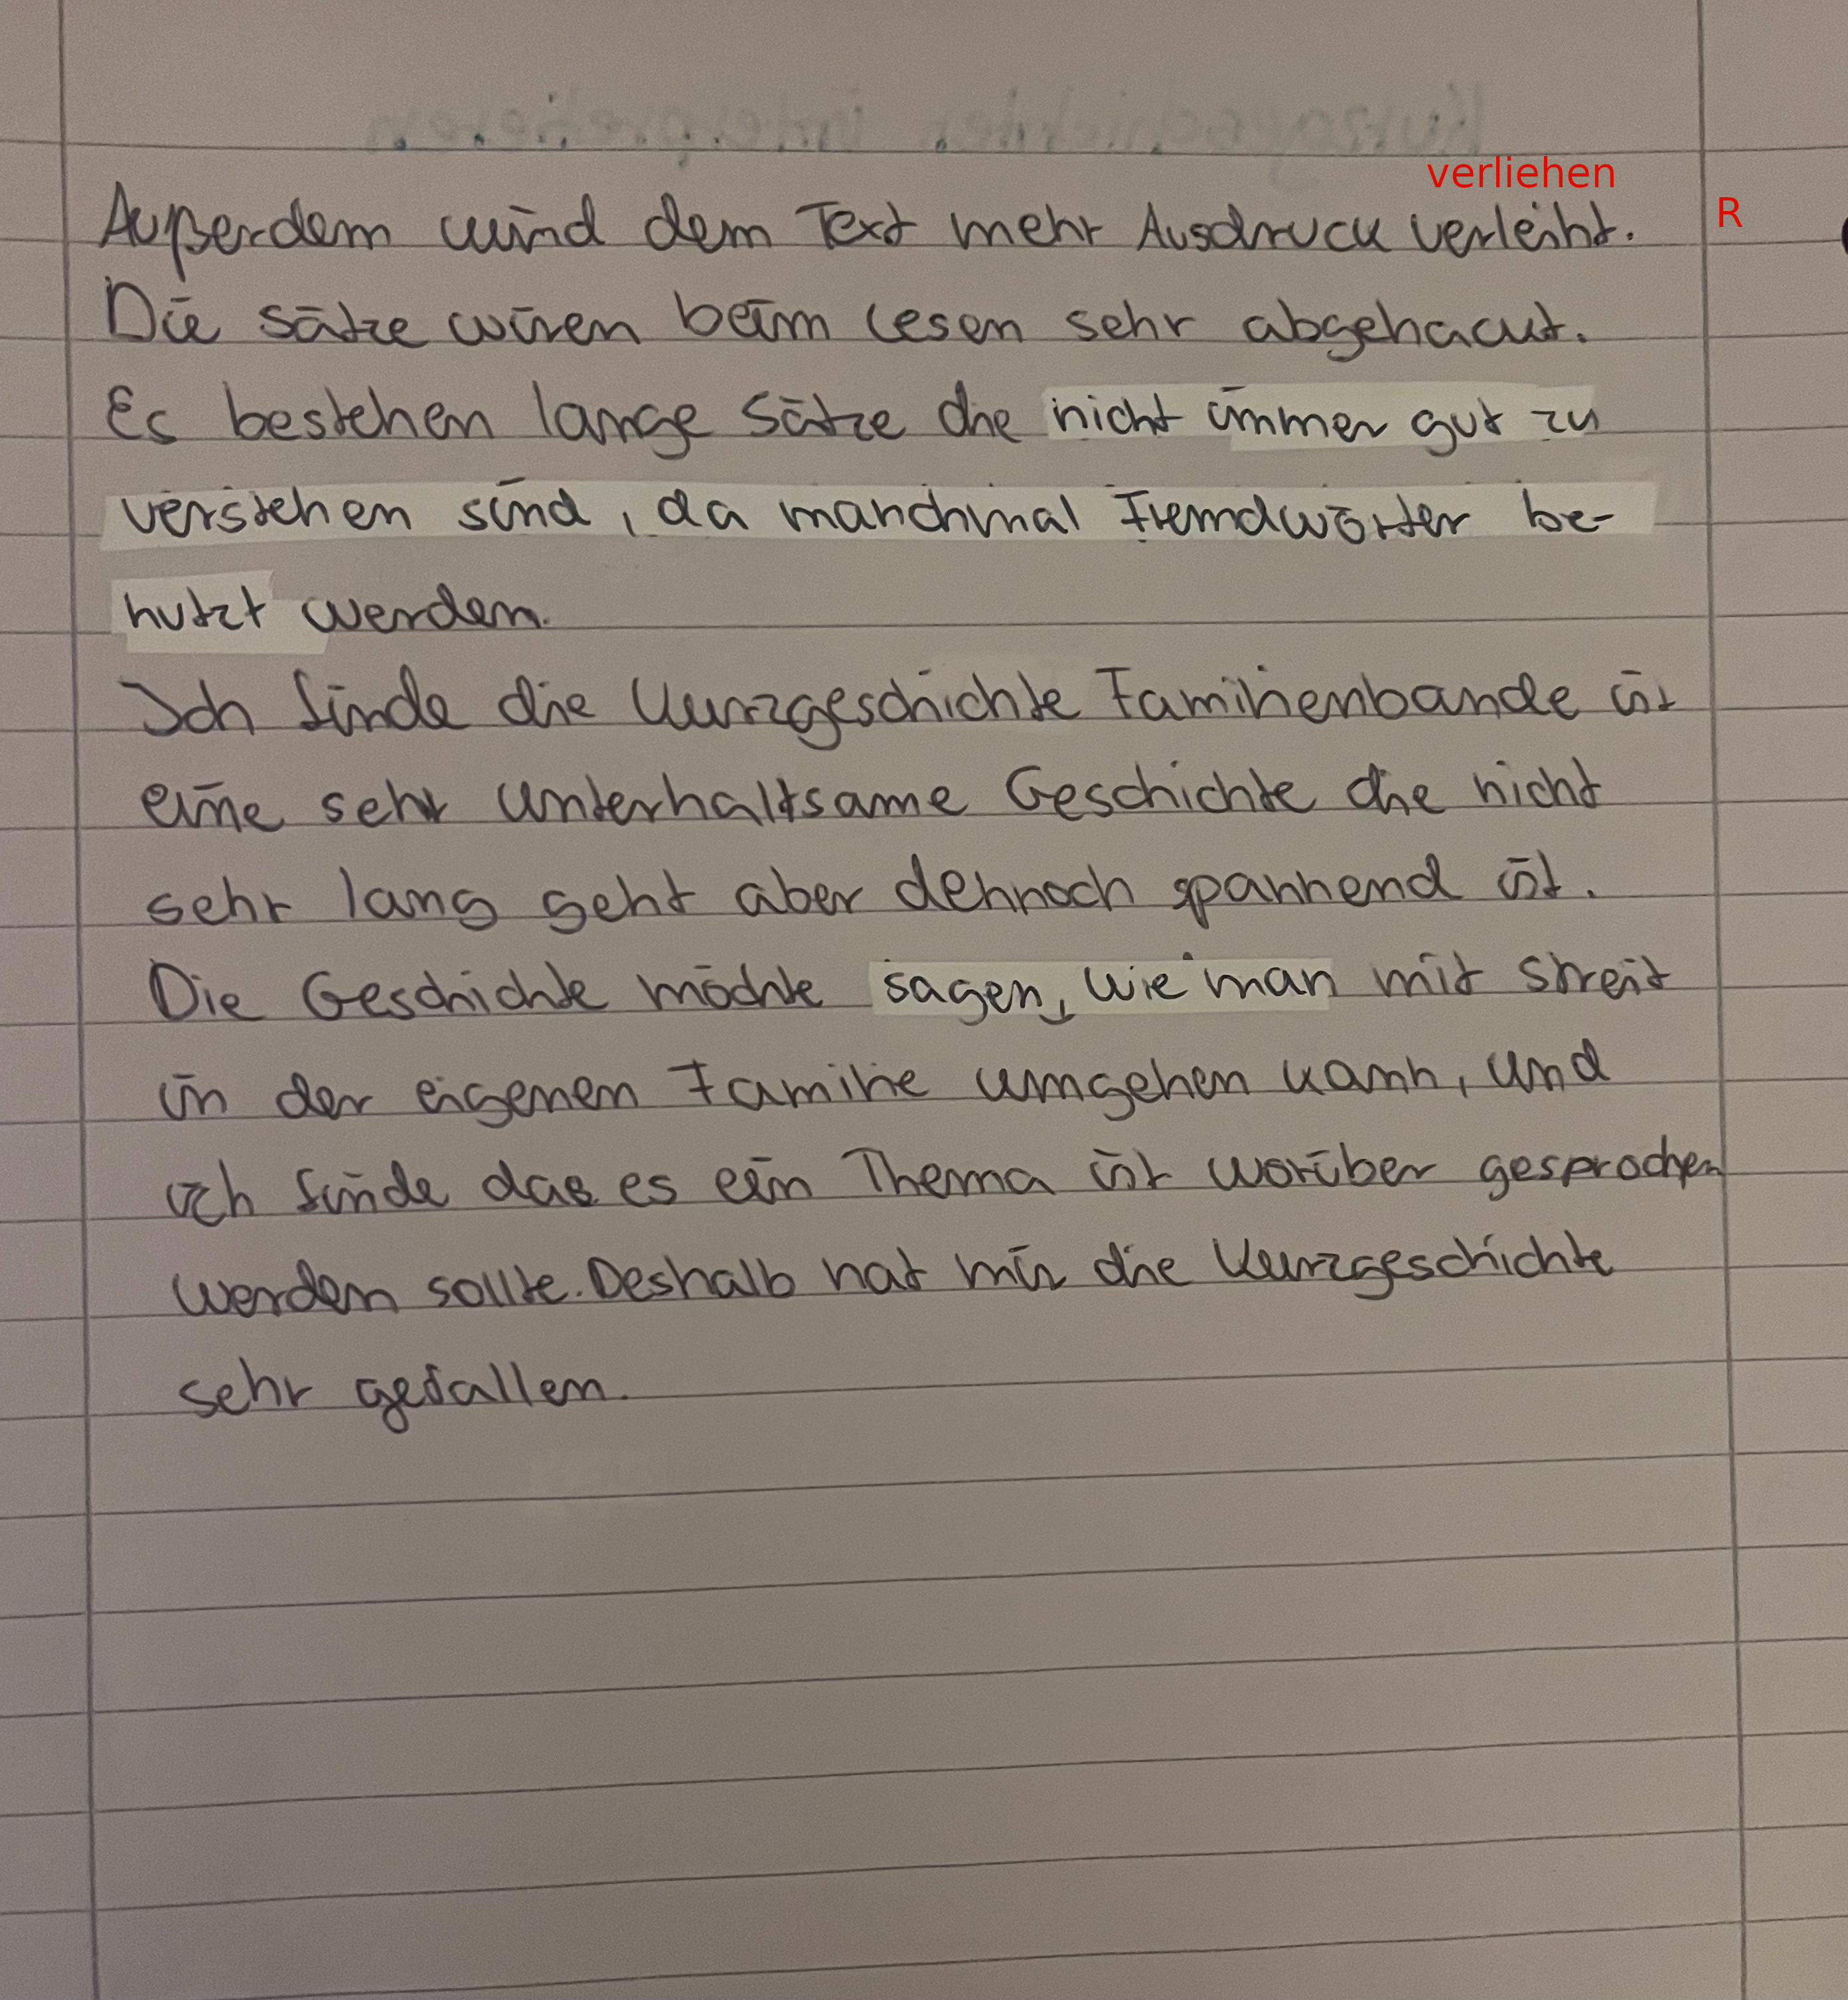 verliehen
Außerdem wird dem Text mehr Ausdruck verleiht. R
Die sätze wiren beim lesen sehr abgehackt.
Es bestehen lange Sätze die nicht immer gut zu
verstehen sind, da manchmal Fremdwörter be-
nutzt werden.
Ich finde die Kurzgeschichte Familienbande ist
eine sehr unterhaltsame Geschichte die nicht
sehr lang geht aber dennoch spannend ist.
Die Geschichte möchte sagen, wie man mit streit
in der eigenen Familie umgehen kann, und
ich finde das es ein Thema ist worüber gesprochen
werden sollte. Deshalb hat mir die Kurzgeschichte
sehr gefallen.